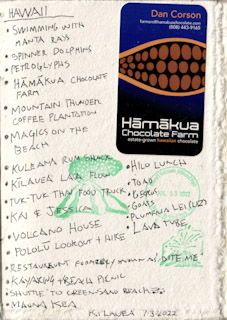 HAWAII
• SWIMMING WITH
MANTA RAYS
• SPINNER DOLPHINS
• PETROGLYPHS
• HĀMĀKUA CHOCOLATE
FARM
• MOUNTAIN THUNDER
COFFEE PLANTATION
• MAGICS ON THE
BEACH
• KULEANA RUM SHACK
• KĪLAUEA LAVA FLOW
• TUK-TUK THAI FOOD TRUCK
• KAI & JESSICA
• VOLCANO HOUSE
• POLOLŪ LOOKOUT + HIKE
• RESTAURANT FORMERLY KNOWN AS
• KAYAKING + BEACH PICNIC
• SHUTTLE TO GREENSAND BEACH
• MAUNA KEA
KILAUEA 7/3/2022
Dan Corson
farmers@hamakuachocolate.com
(808) 443-9165
Hāmākua
Chocolate Farm
estate-grown hawaiian chocolate
• HILO LUNCH
• TOAD
• GECKOS
• GOATS
• PLUMERIA LEI
• LAVA TUBE